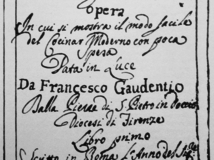 Opera
In cui si mostra il modo facile
del Cocinar Moderno con poca
Spesa
Data in Luce
Da Francesco Gaudentio
Dalla Pieve di S. Pietro in
Diocesi di Firenze
Libro primo
Scritto in Roma L'Anno del